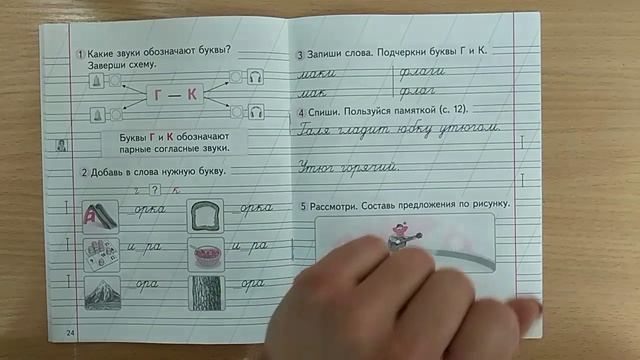 1 Какие звуки обозначают буквы?
Заверши схему.
Г — К
Буквы Г и К обозначают
парные согласные звуки.
2 Добавь в слова нужную букву.
г ? к
_орка _орка
и_ра и_ра
_ора _ора
24
3 Запиши слова. Подчеркни буквы Г и К.
маки флаги
мак флаг
4 Спиши. Пользуйся памяткой (с. 12).
Галя гладит юбку утюгом.
Утюг горячий.
5 Рассмотри. Составь предложения по рисунку.